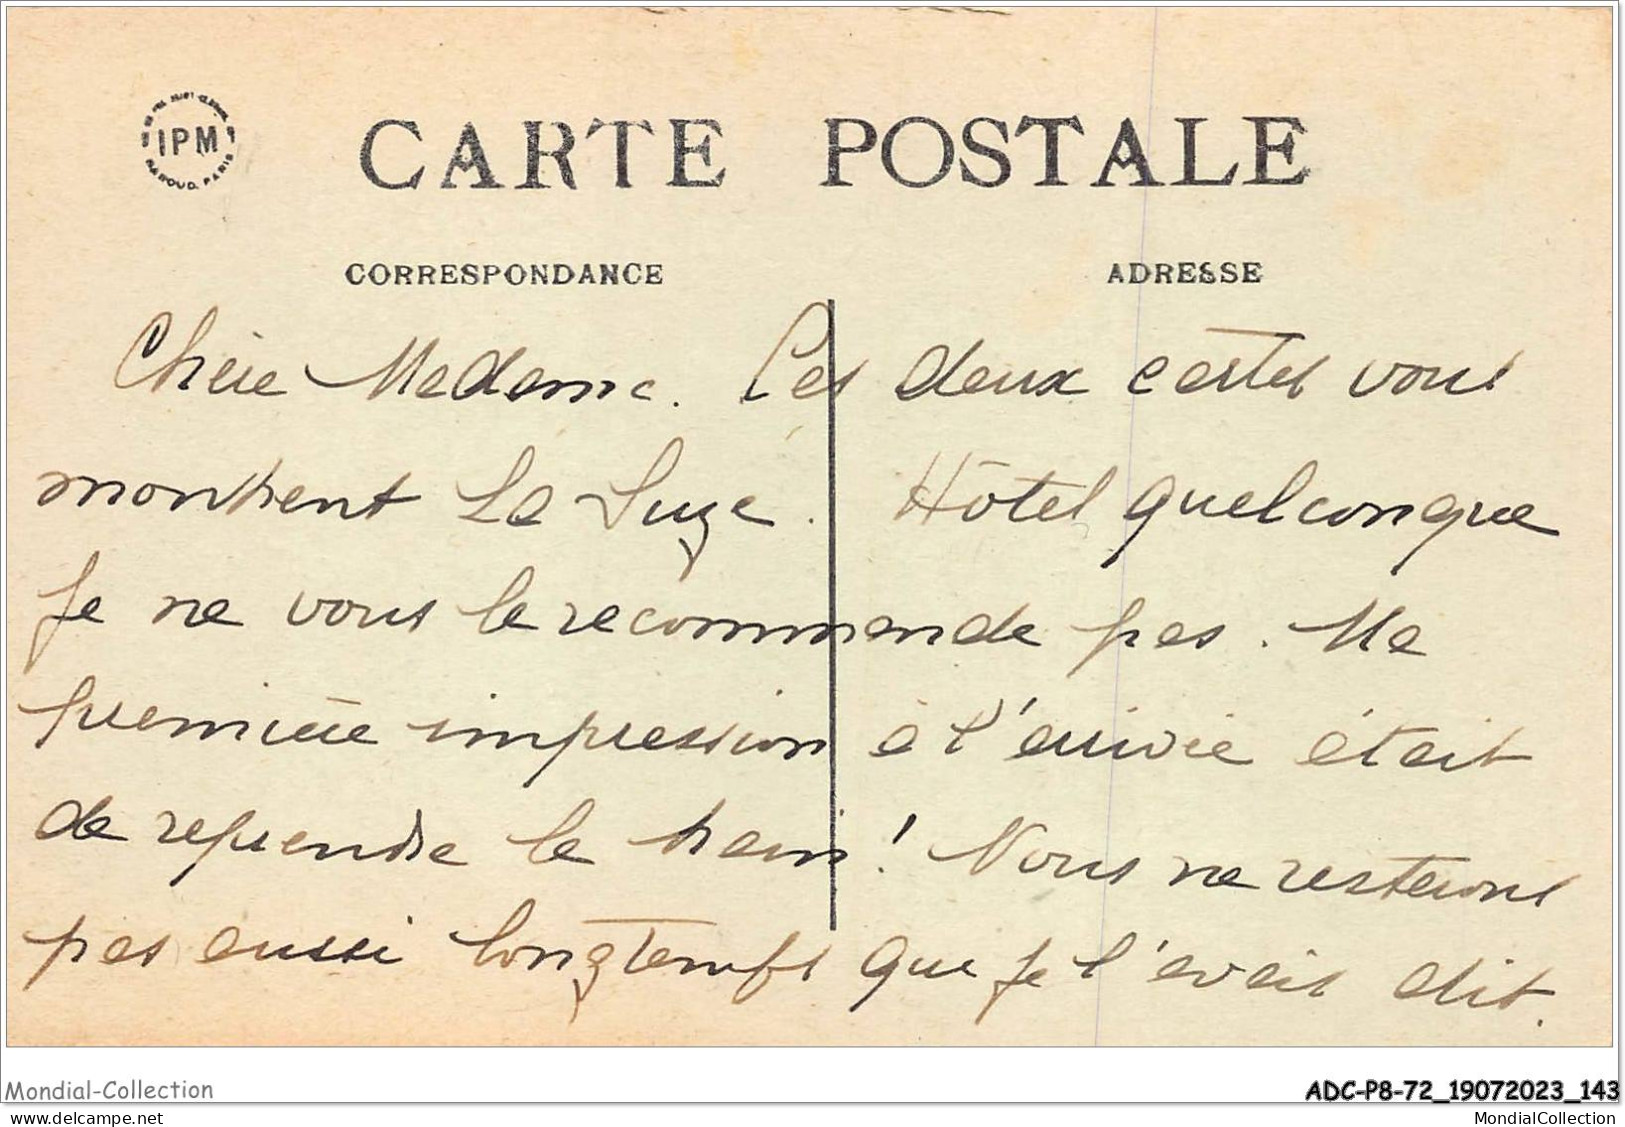 IPM
CARTE POSTALE
CORRESPONDANCE
ADRESSE
Chère Madame. Ces deux cartes vous
montrent La Suze. Hôtel quelconque
Je ne vous le recommande pas. Ma
première impression à l'arrivée était
de reprendre le train! Nous ne resterons
pas aussi longtemps que je l'avais dit.
Mondial-Collection
ADC-P8-72_19072023_143
delcampe.net
MondialCollection